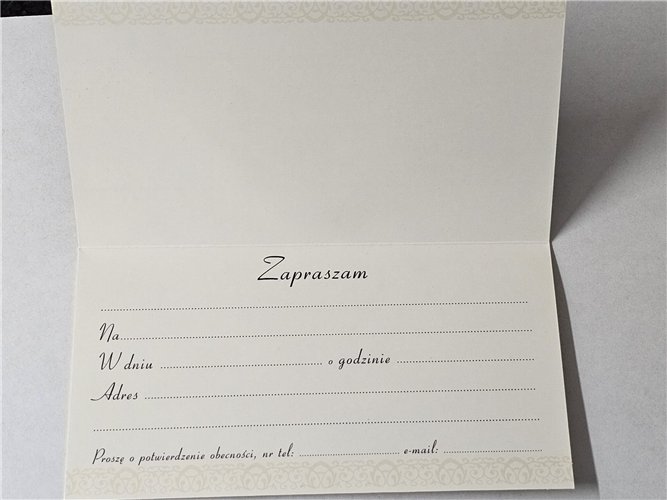 Zapraszam
................................................................
Na................................................................
W dniu ........................................ o godzinie ........................................
Adres ................................................................
................................................................
Proszę o potwierdzenie obecności, nr tel: ........................................ e-mail: ........................................